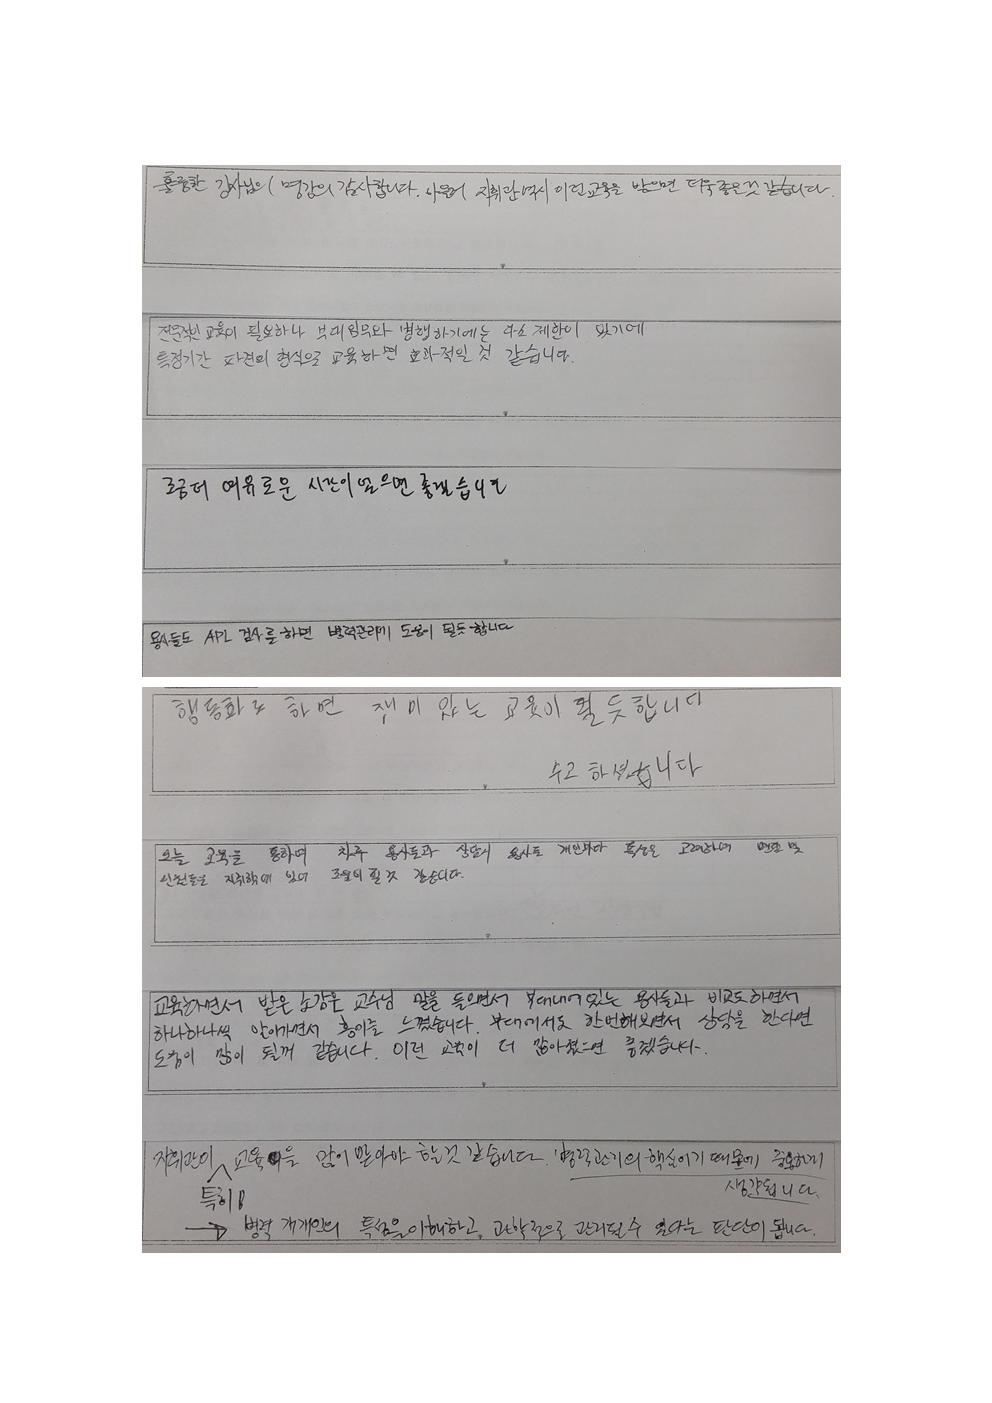 훌륭한 강사님의 명강의 감사합니다. 지휘관 역시 이런교육을 받으면 더욱 좋은것 같습니다.
전문적인 교육이 필요하나 부대업무와 병행하기에는 다소 제한이 있기에
특정기간 파견의 형식으로 교육하면 효과적일 것 같습니다.
조금더 여유로운 시간이 있으면 좋겠습니다
용사들도 APL 검사를 하면 병력관리에 도움이 될듯 합니다
행동화로 하면 재미 있는 교육이 될 듯합니다
수고 하셨습니다
오늘 교육을 통하여 차후 용사들과 상담시 용사도 개인마다 특성을 고려하여 면담 및
지휘함에 있어 도움이 될 것 같습니다.
교육하면서 받은 느낌은 교수님 말을 들으면서 부대내에있는 용사들과 비교도하면서
하나하나씩 알아가면서 흥미를 느꼈습니다. 부대에서도 한번해보면서 상담을 한다면
도움이 많이 될꺼 같습니다. 이런 교육이 더 많아졌으면 좋겠습니다.
지휘관이 교육을 많이 받아야 할것 같습니다. 병력관리의 핵심이기 때문에 중요하리
특히!
생각됩니다.
→ 병력 개개인의 특성을 이해하고, 과학적으로 관리될수 있다는 판단이 됩니다.